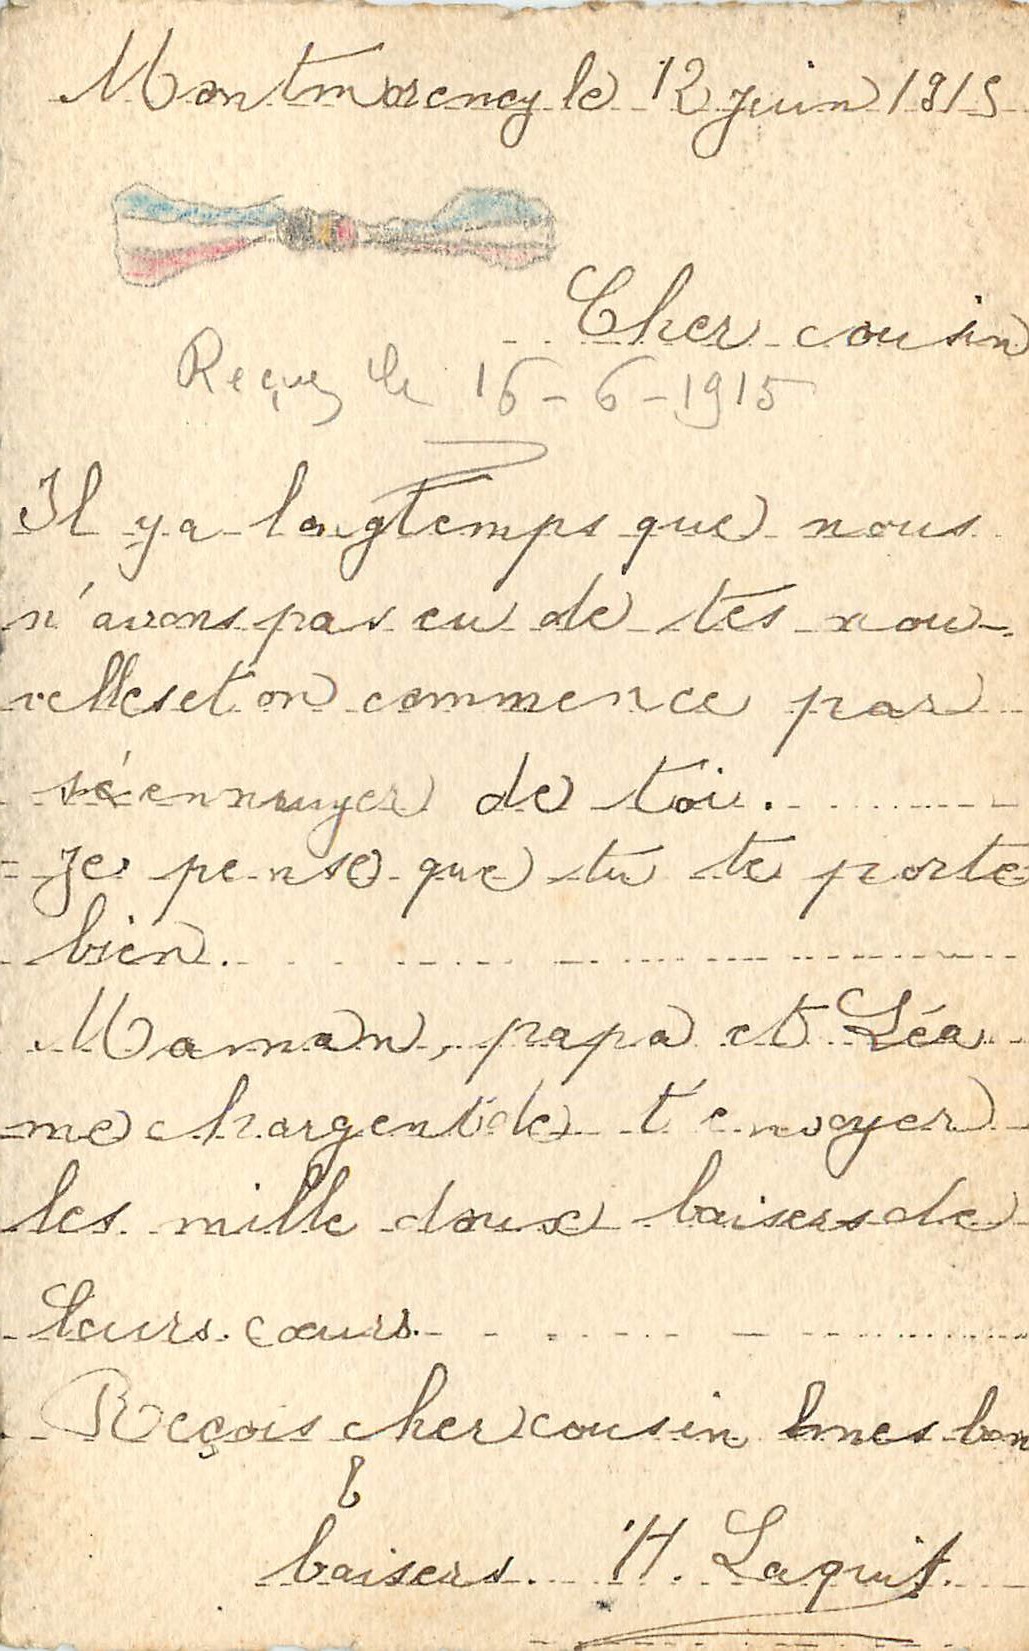 Montmorency le 12 juin 1915
Cher cousin
Reçue le 16-6-1915
Il y a longtemps que nous
n'avons pas eu de tes nou-
velles et on commence par
s'ennuyer de toi.
Je pense que tu te porte
bien.
Maman, papa et Léa
me chargent de t'envoyer
les mille doux baisers de
leurs cœurs.
Reçois cher cousin mes bon
baisers. H.